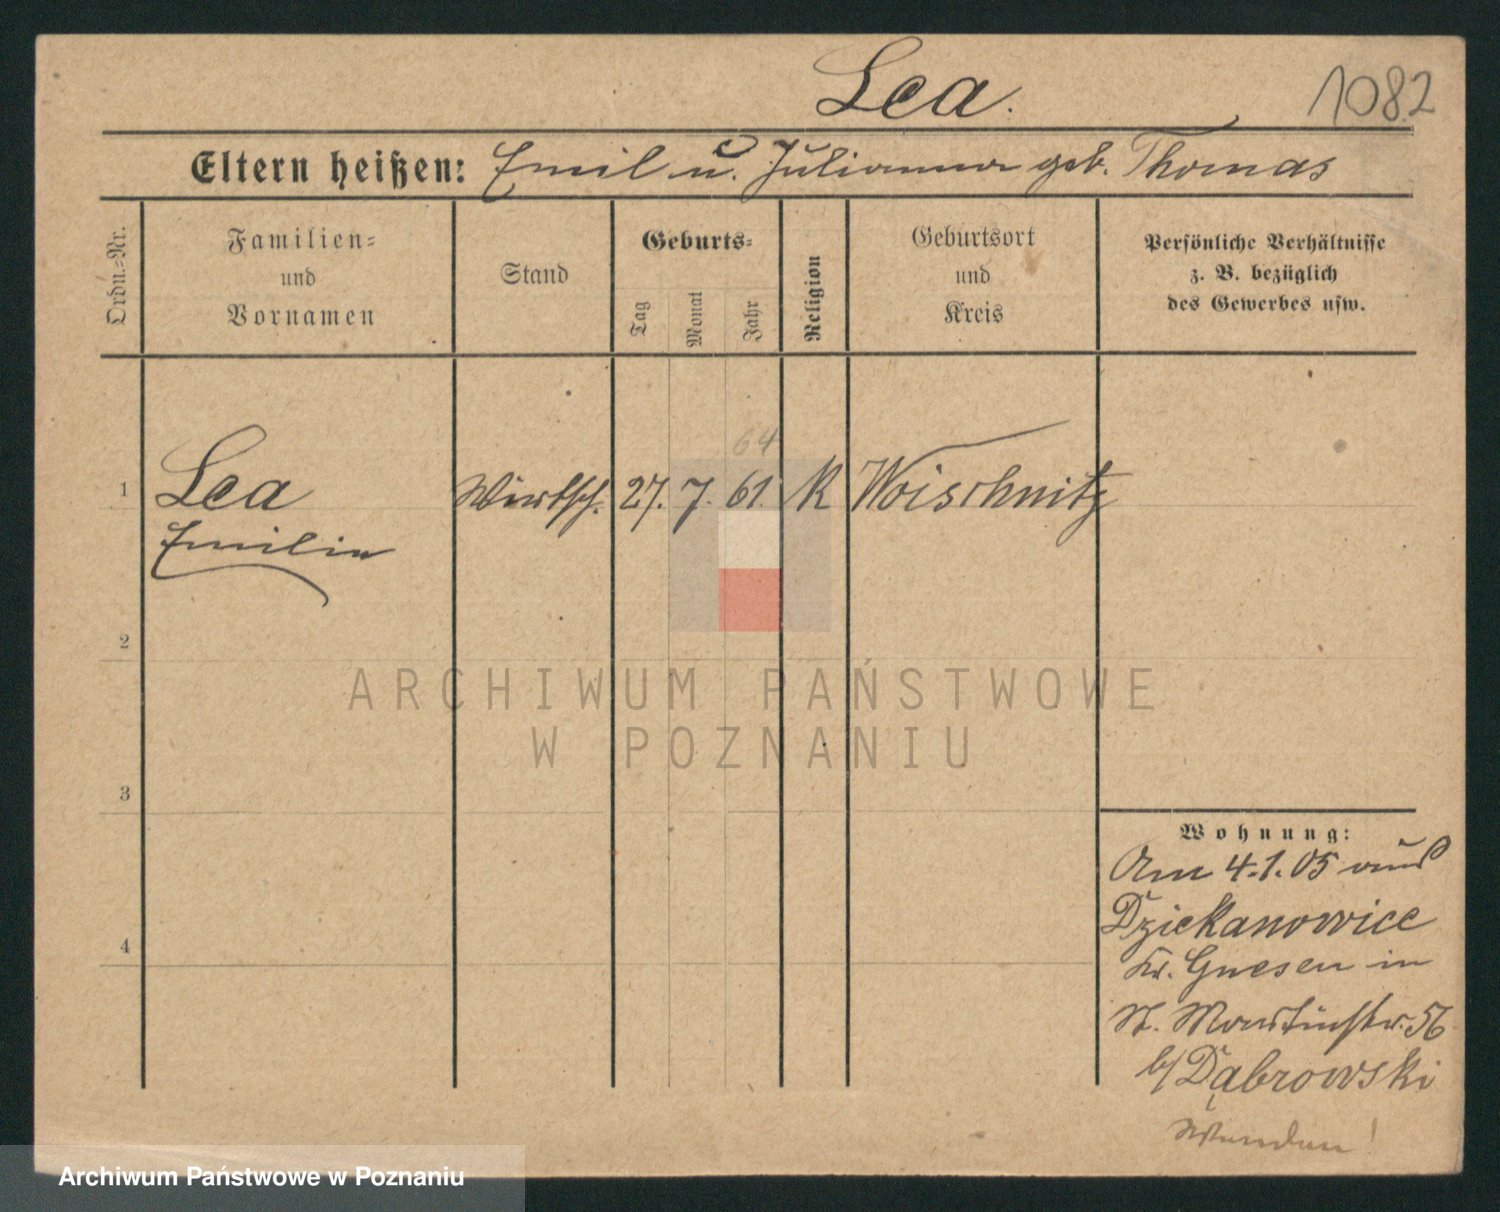 Lea.
1082
Eltern heißen: Emil u. Julianna geb. Thomas
Ordn.-Nr.
Familien-
und
Vornamen
Stand
Geburts-
Tag
Monat
Jahr
Religion
Geburtsort
und
Kreis
Persönliche Verhältnisse
z. B. bezüglich
des Gewerbes usw.
64
1 Lea Wirtsch. 27. 7. 61. K Woischnitz
Emilie
2
ARCHIWUM PAŃSTWOWE
W POZNANIU
3
Wohnung:
Am 4.1.05 aus
Dziekanowice
4
Kr. Gnesen in
St. Martinstr. 56
b/ Dąbrowski
Wenden!
Archiwum Państwowe w Poznaniu